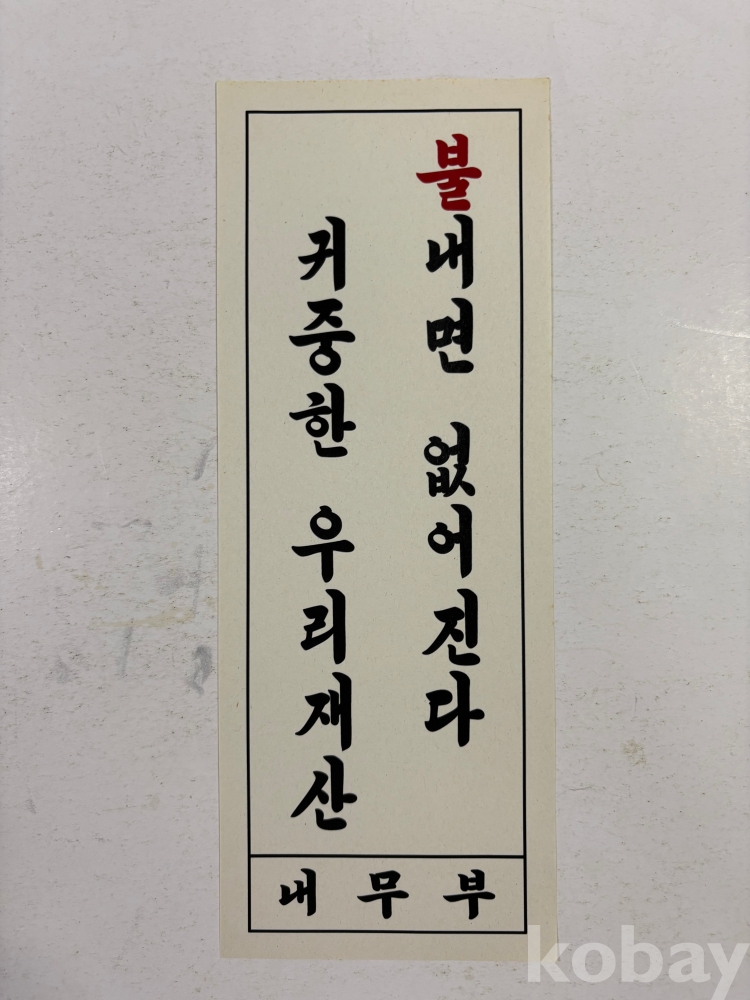 불내면 없어진다
귀중한 우리재산
내무부
kobay